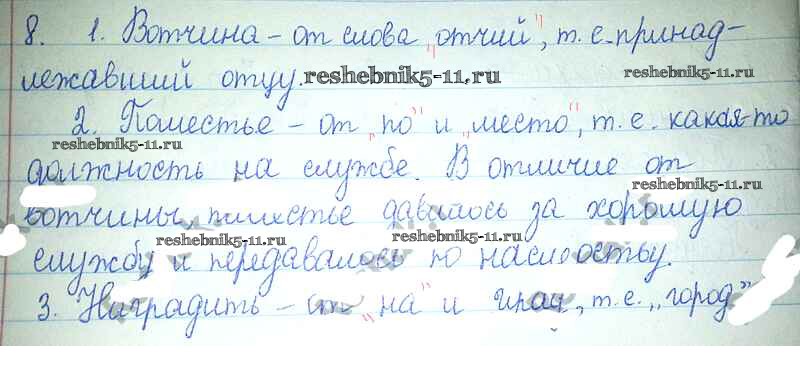 8. 1. Вотчина – от слова "отчий", т. е. принад-
лежавший отцу. reshebnik5-11.ru
2. Поместье – от "по" и "место", т. е. какая-то
reshebnik5-11.ru
должность на службе. В отличие от
reshebnik5-11.ru
вотчины, поместье давалось за хорошую
reshebnik5-11.ru reshebnik5-11.ru
службу и передавалось по наследству.
3. Наградить – от "на" и град, т. е. "город"